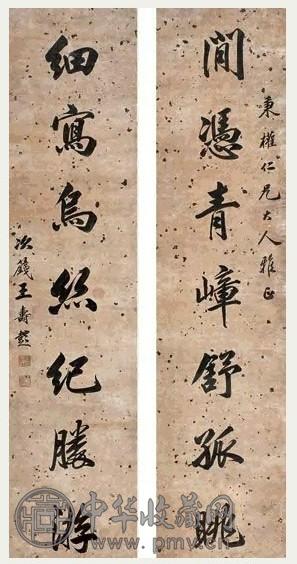 秉權仁兄大人雅正
閒憑青嶂舒孤眺
細寫烏絲紀勝游
次籛王壽
中华收藏网
www.pmv.cn